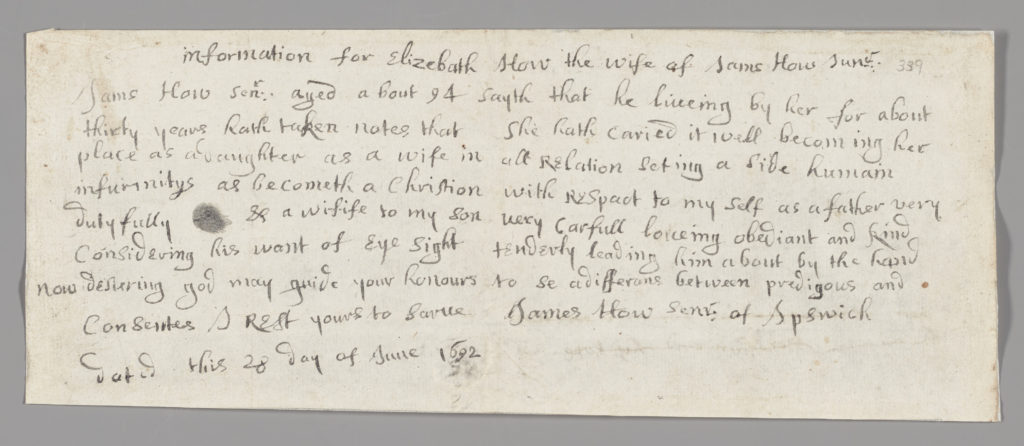 information for Elizebath How the wife of Jams How Junr. 339
Jams How senr. aged about 94 sayth that he liveing by her for about
thirty years hath taken notes that she hath caried it well becoming her
place as a daughter as a wife in all Relation seting a side humam
infurmitys as becometh a Christion with Respact to my self as a father very
dutyfully & a wifife to my son uery Carfull loueing obediant and kind
Considering his want of Eye sight tenderly leading him about by the hand
now desiering god may guide your honours to se a differans between predigous and
Consentes I Rest yours to Sarue James How senr. of Ipswich
dated this 28 day of June 1692